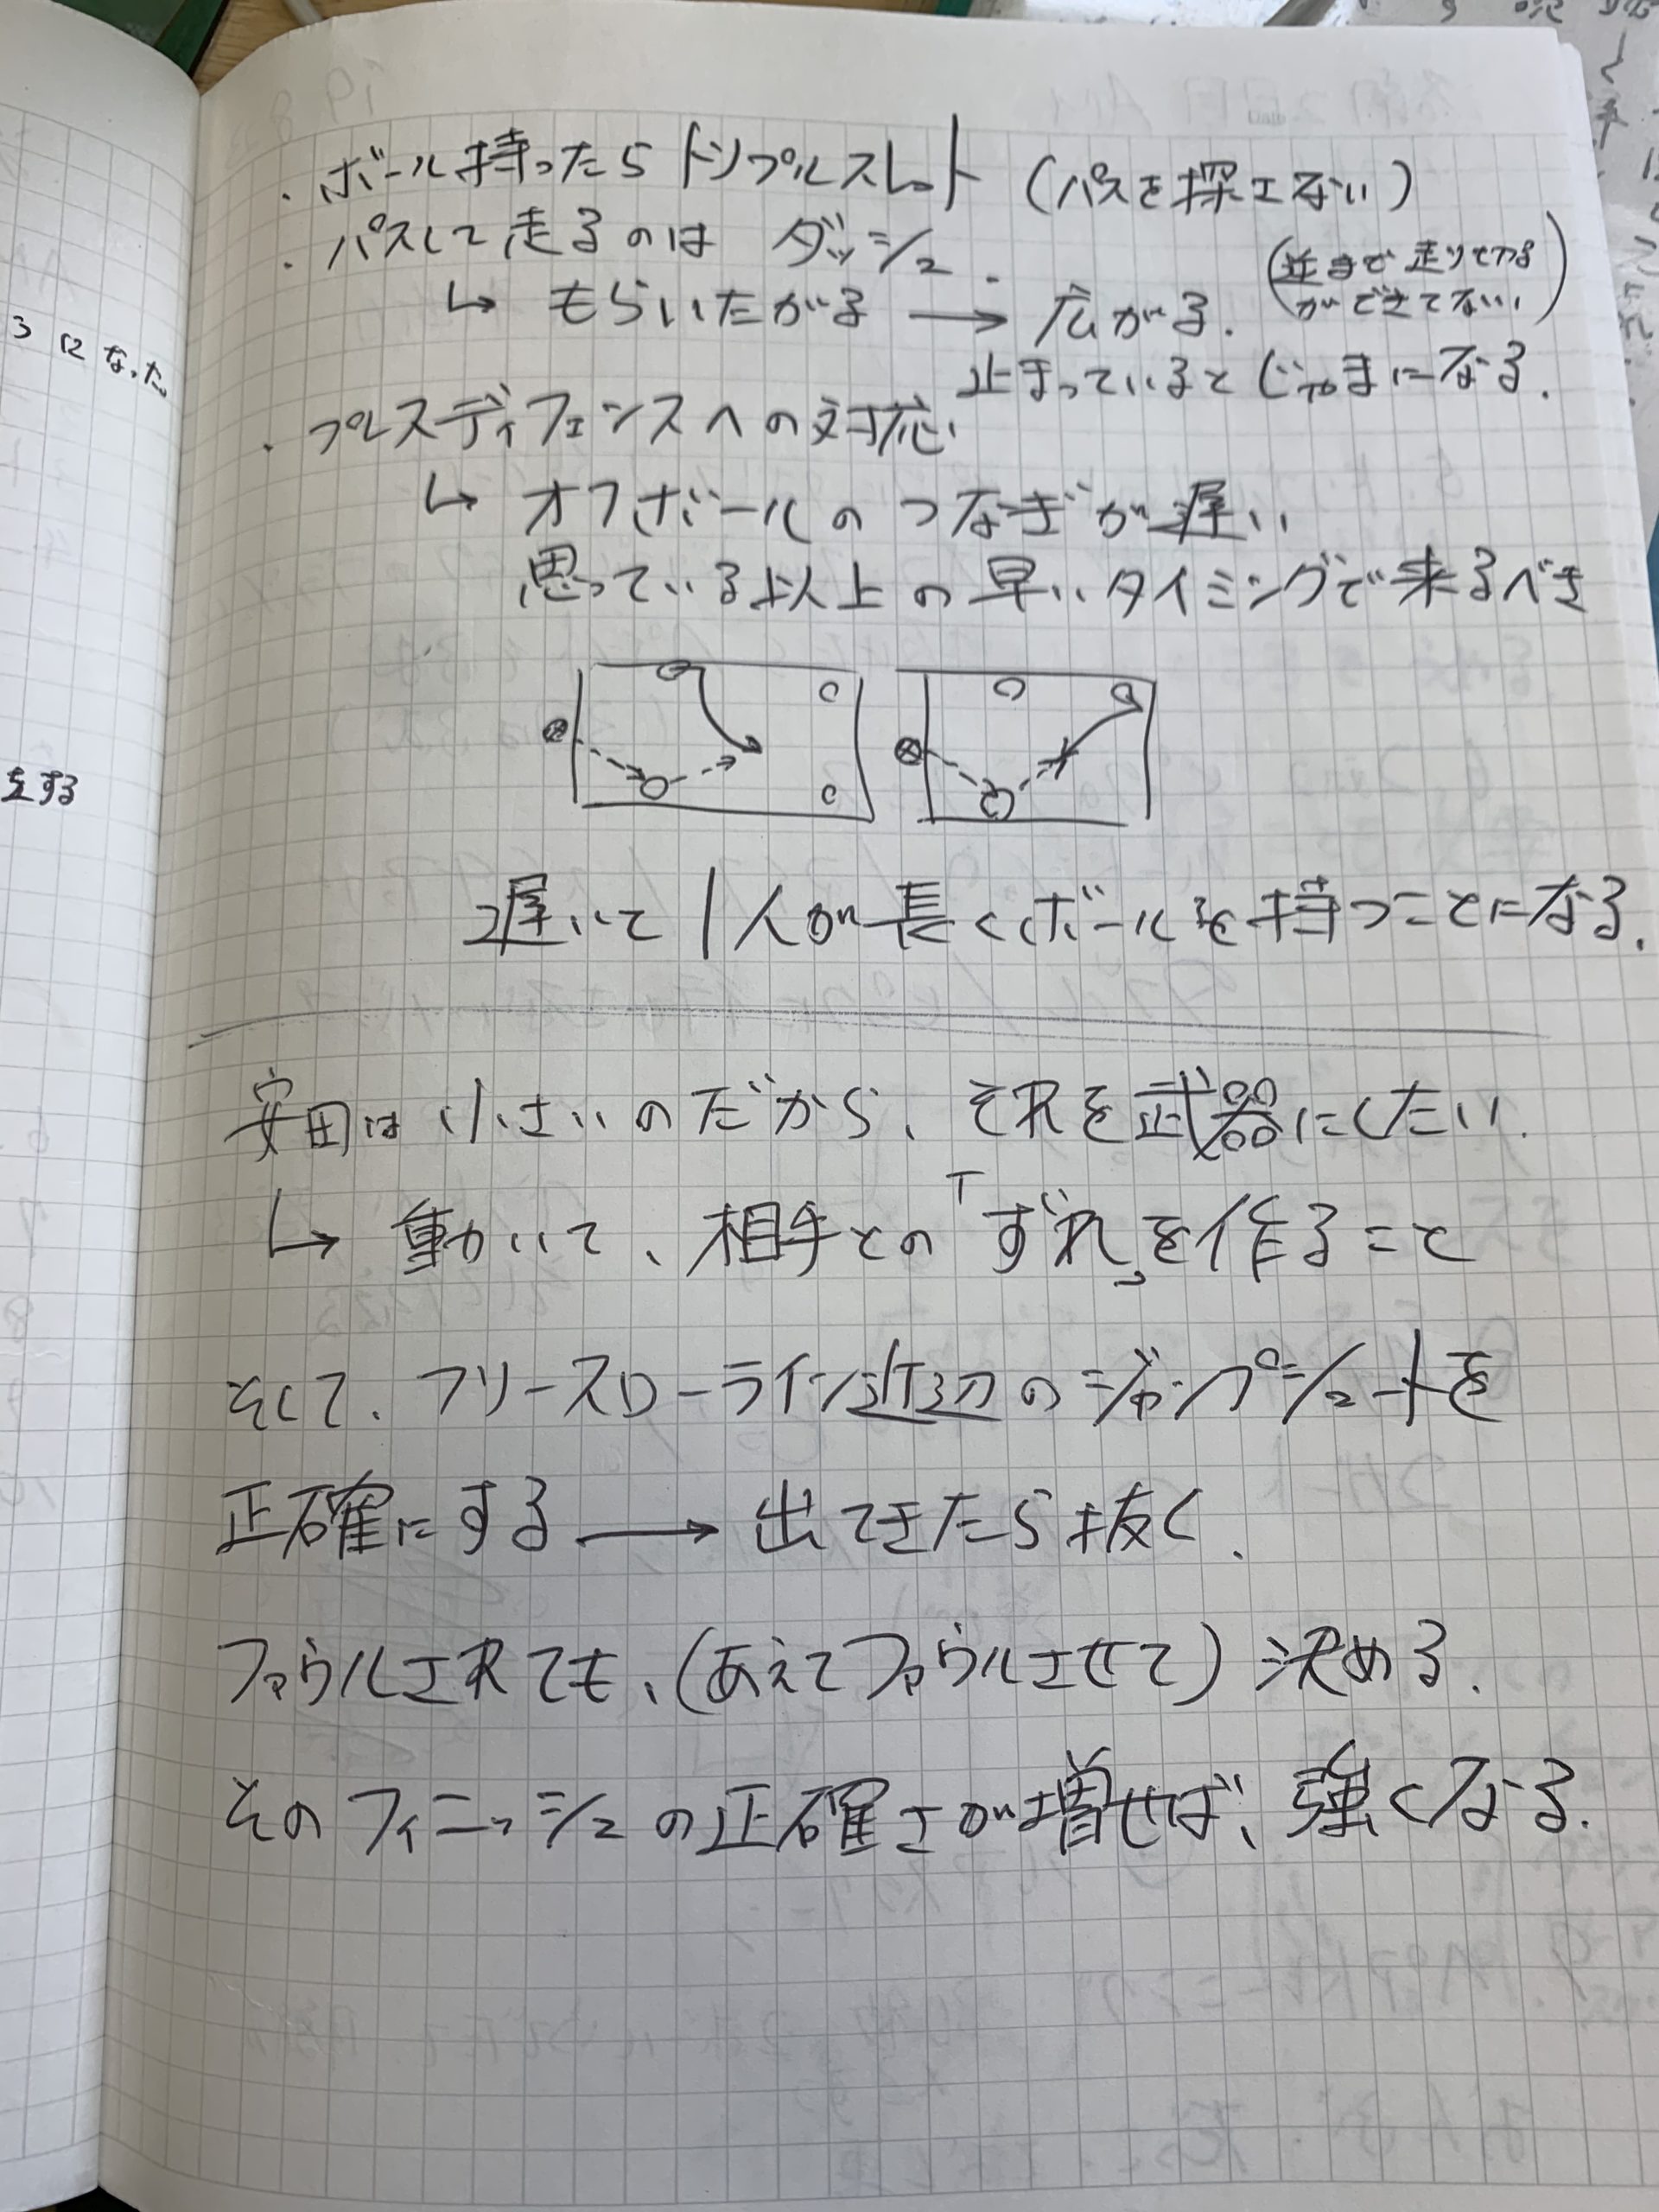 ・ボール持ったらトリプルスレット(パスを探さない)
・パスして走るのはダッシュ.
↳ もらいたがる → 広がる.
(逆まで走りてやる
ができてない)
止まっているとじゃまになる.
・プレスディフェンスへの対応
↳ オフボールのつなぎが遅い
思っている以上の早いタイミングで来るべき
遅いと1人が長くボールを持つことになる.
安田は小さいのだから、それを武器にしたい.
↳ 動いて、相手との「ずれ」を作ること
そして、フリースローライン近辺のジャンプシュートを
正確にする → 出てきたら抜く.
ファウルされても、(あえてファウルさせて)決める.
そのフィニッシュの正確さが増せば、強くなる.
3になった
をする